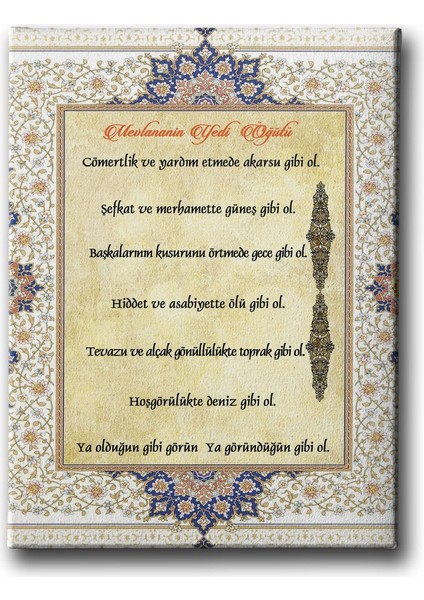 Mevlananin Yedi Öğütü
Cömertlik ve yardım etmede akarsu gibi ol.
Şefkat ve merhamette güneş gibi ol.
Başkalarının kusurunu örtmede gece gibi ol.
Hiddet ve asabiyette ölü gibi ol.
Tevazu ve alçak gönüllülükte toprak gibi ol.
Hoşgörülükte deniz gibi ol.
Ya olduğun gibi görün Ya göründüğün gibi ol.